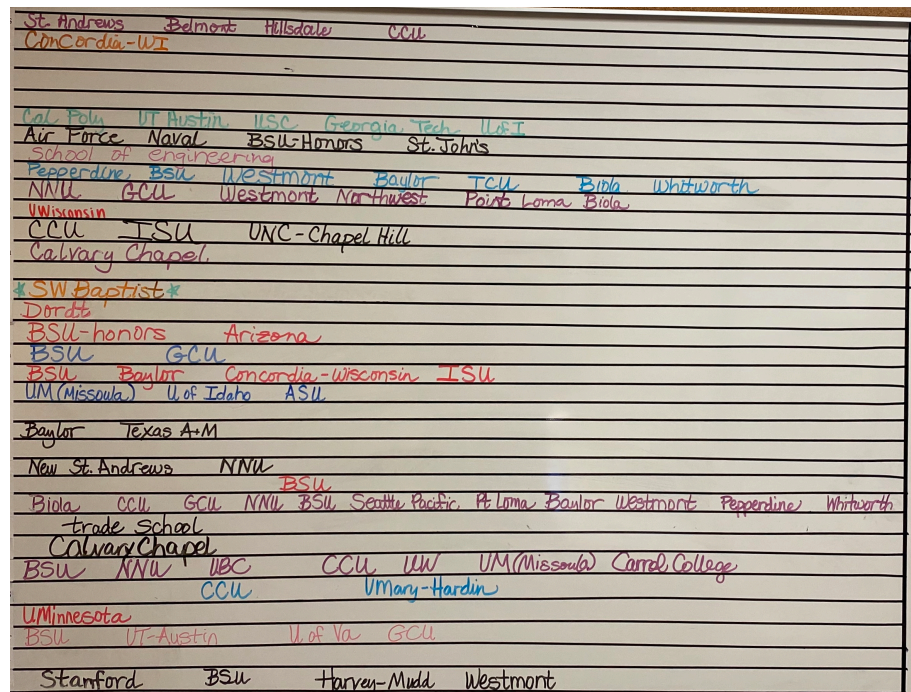 St. Andrews Belmont Hillsdale CCU
ConCordia-WI
Cal Poly UT Austin USC Georgia Tech U of I
Air Force Naval BSU-Honors St. John's
School of engineering
Pepperdine, BSU Westmont Baylor TCU Biola Whitworth
NNU GCU Westmont Northwest Point Loma Biola
UWisconsin
CCU ISU UNC-Chapel Hill
Calvary Chapel.
*SW Baptist*
Dordt
BSU-honors Arizona
BSU GCU
BSU Baylor Concordia-Wisconsin ISU
UM (Missoula) U of Idaho ASU
Baylor Texas A+M
New St. Andrews NNU
BSU
Biola CCU GCU NNU BSU Seattle Pacific Pt Loma Baylor Westmont Pepperdine Whitworth
trade school
Calvary Chapel
BSU NNU UBC CCU UW UM (Missoula) Carrol College
CCU UMary-Hardin
UMinnesota
BSU UT-Austin U of Va GCU
Stanford BSU Harvey-Mudd Westmont